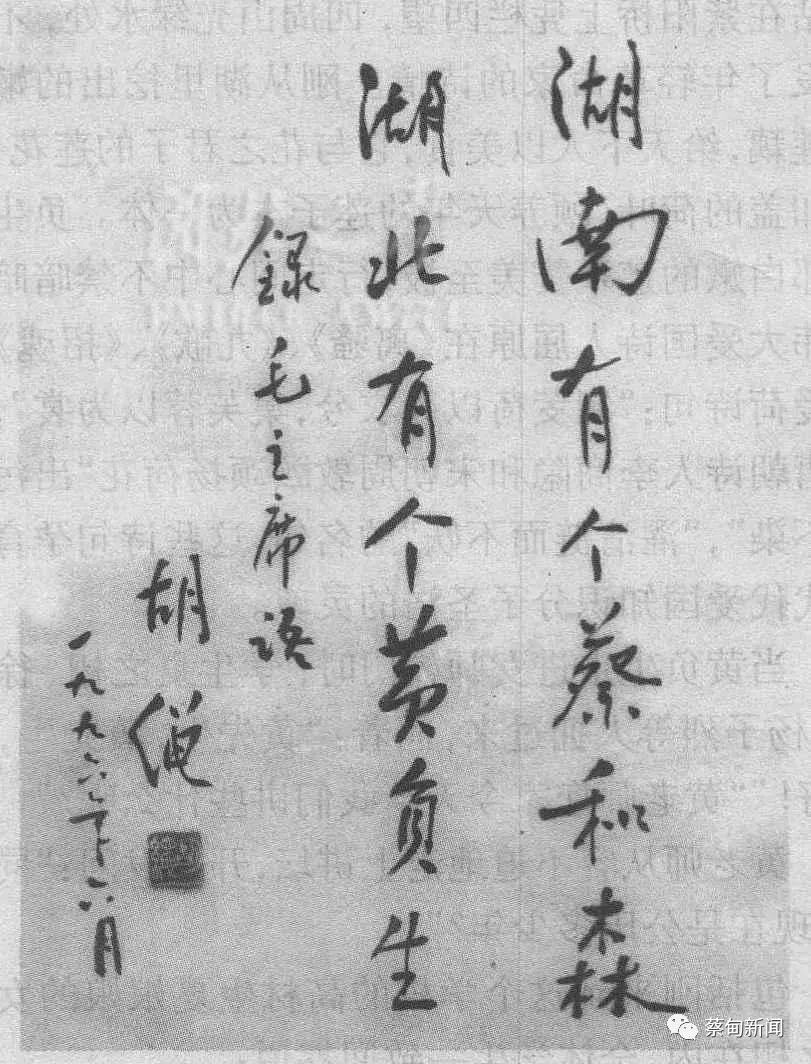 湖南有个蔡和森
湖北有个黄负生
録毛主席语
胡绳
一九九六年六月
蔡甸新闻